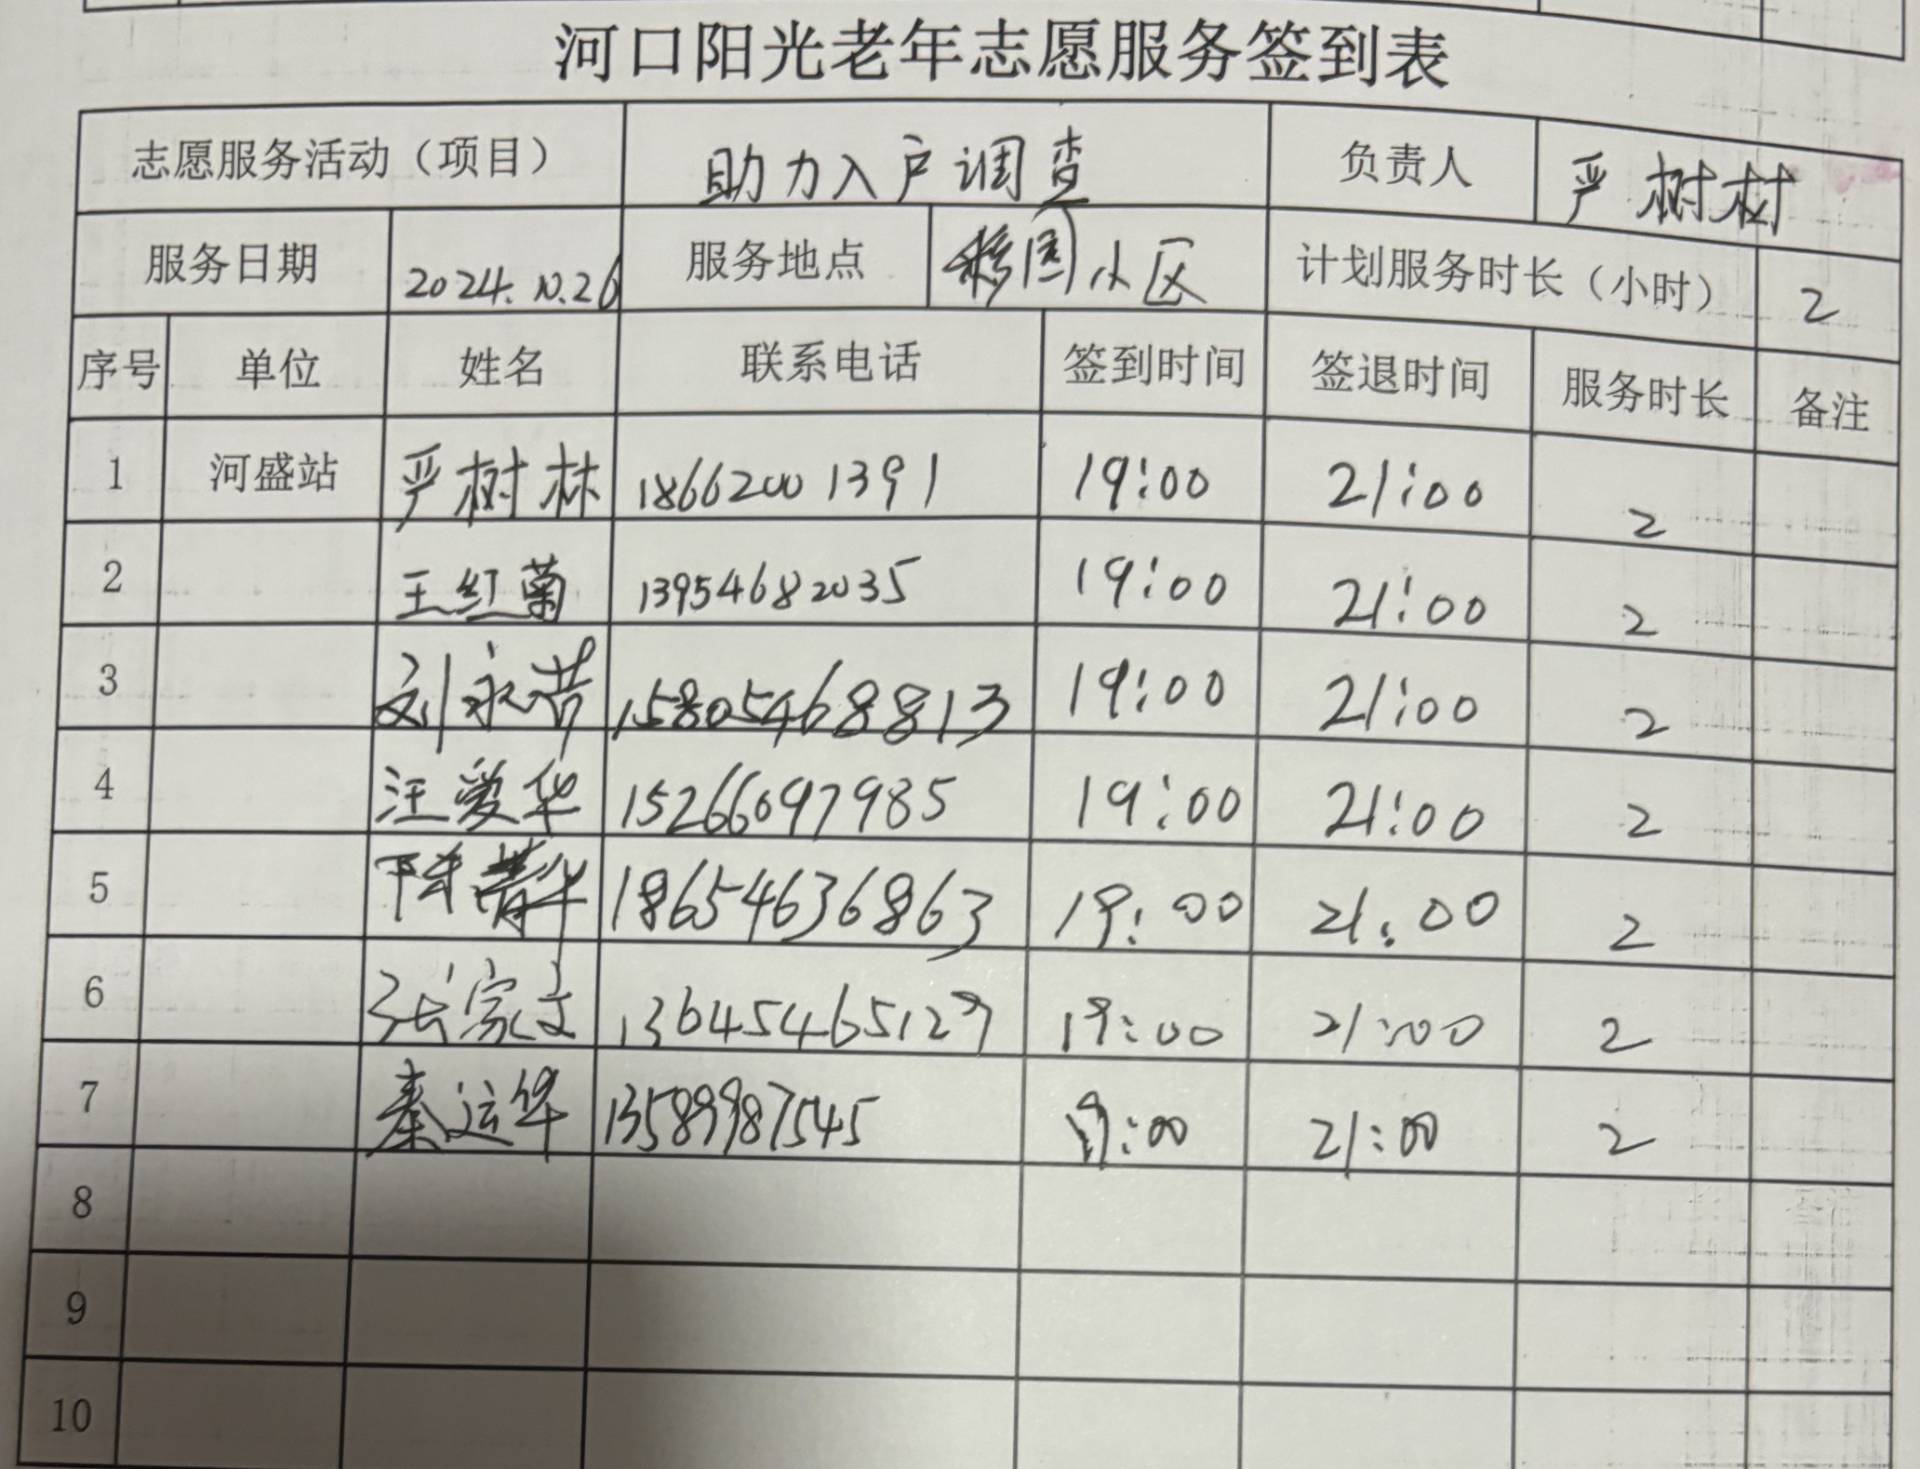 河口阳光老年志愿服务签到表
志愿服务活动（项目） 助力入户调查 负责人 严树林
服务日期 2024.10.26 服务地点 小区 计划服务时长（小时） 2
序号 单位 姓名 联系电话 签到时间 签退时间 服务时长 备注
1 河盛站 严树林 18662001391 19:00 21:00 2
2 王红菊 13954682035 19:00 21:00 2
3 刘永 15805468813 19:00 21:00 2
4 汪爱华 15266097985 19:00 21:00 2
5 陈菁华 18654636863 19:00 21:00 2
6 张家文 13645465129 19:00 21:00 2
7 秦运华 13589987545 19:00 21:00 2
8
9
10